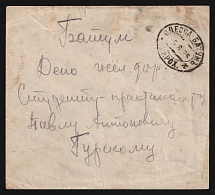 Батум
Депо жел. дор.
Студенту-практиканту
Павлу Антоновичу
Гурскому
ОДЕССА БАТУМЪ